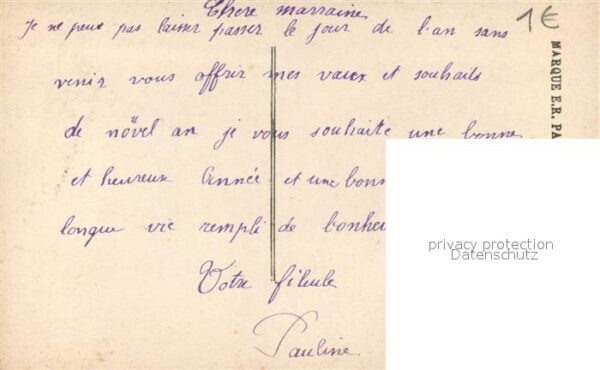 Chere marraine
Je ne peux pas laisser passer le jour de l'an sans
venir vous offrir mes vœux et souhaits
de növel an je vous souhaite une bonne
et heureux année et une bonn
longue vie rempli de bonheu
Votre fileule
Pauline
1€
MARQUE E.R. PA
privacy protection
Datenschutz